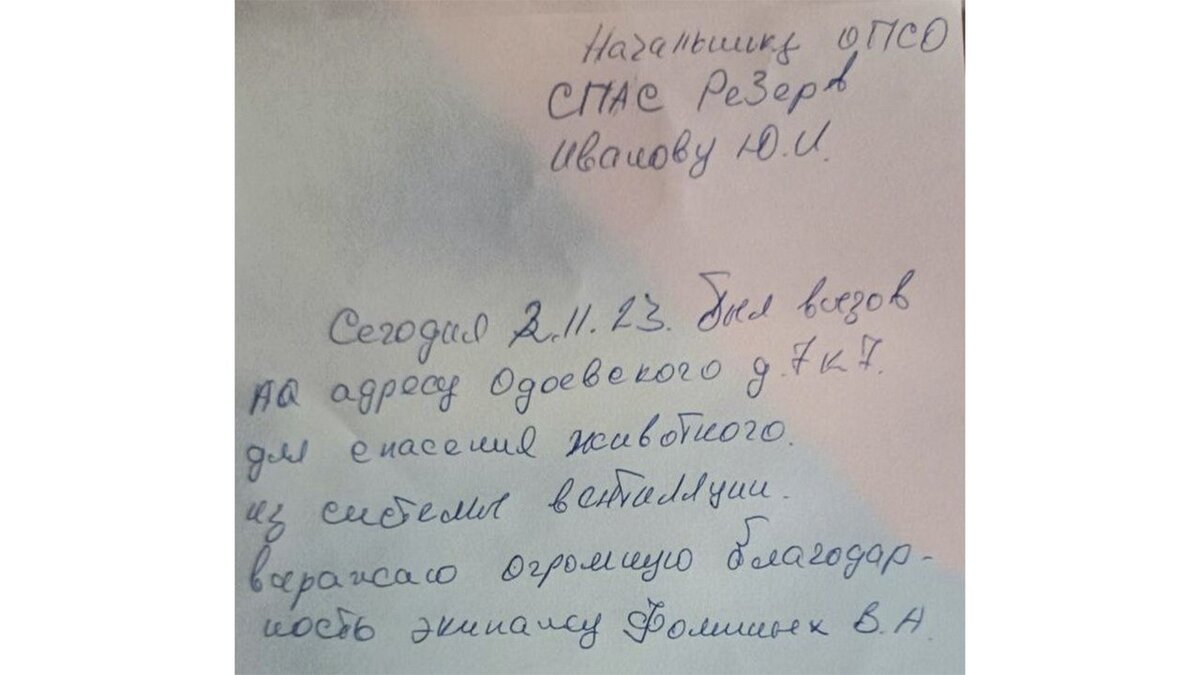 Начальнику ОПСО
СПАС РеЗерв
Иванову Ю.И.
Сегодня 2.11.23. был вызов
по адресу Одоевского д.7к7.
для спасения животного.
из системы вентиляции.
выражаю огромную благодар-
ность экипажу Фоминых В.А.